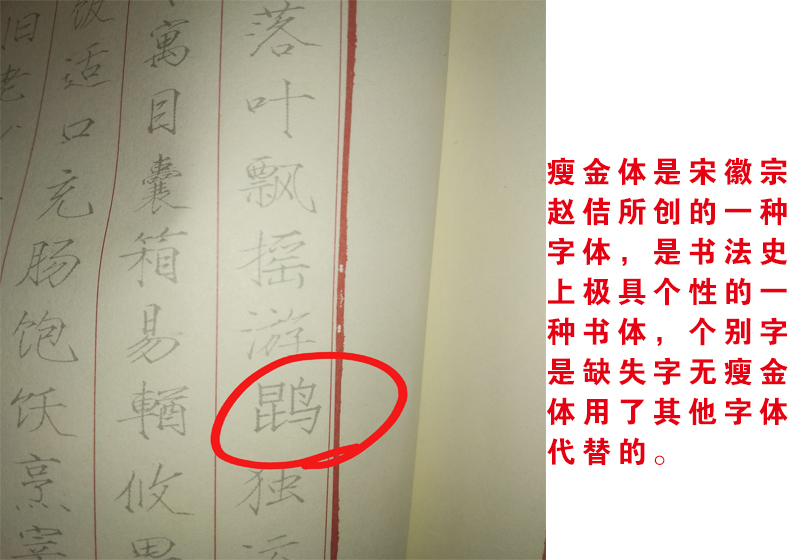 落叶飘摇游鹍独运
寓目囊箱易輶攸畏
饭适口充肠饱饫烹宰
旧老少
瘦金体是宋徽宗
赵佶所创的一种
字体，是书法史
上极具个性的一
种书体，个别字
是缺失字无瘦金
体用了其他字体
代替的。